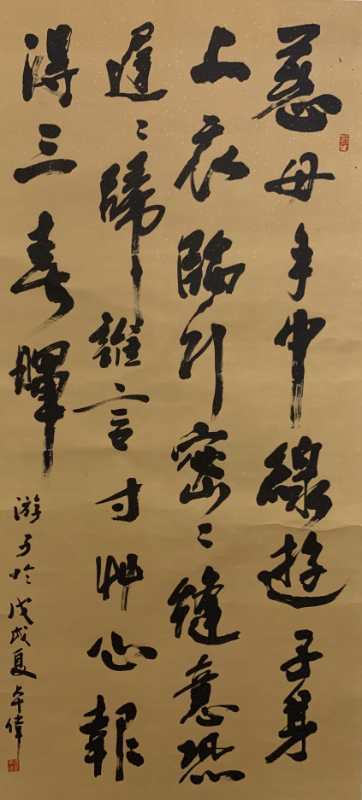 慈母手中線遊子身
上衣臨行密〻縫意恐
遲〻歸誰言寸艸心報
得三春暉
游子吟戊戌夏卓偉